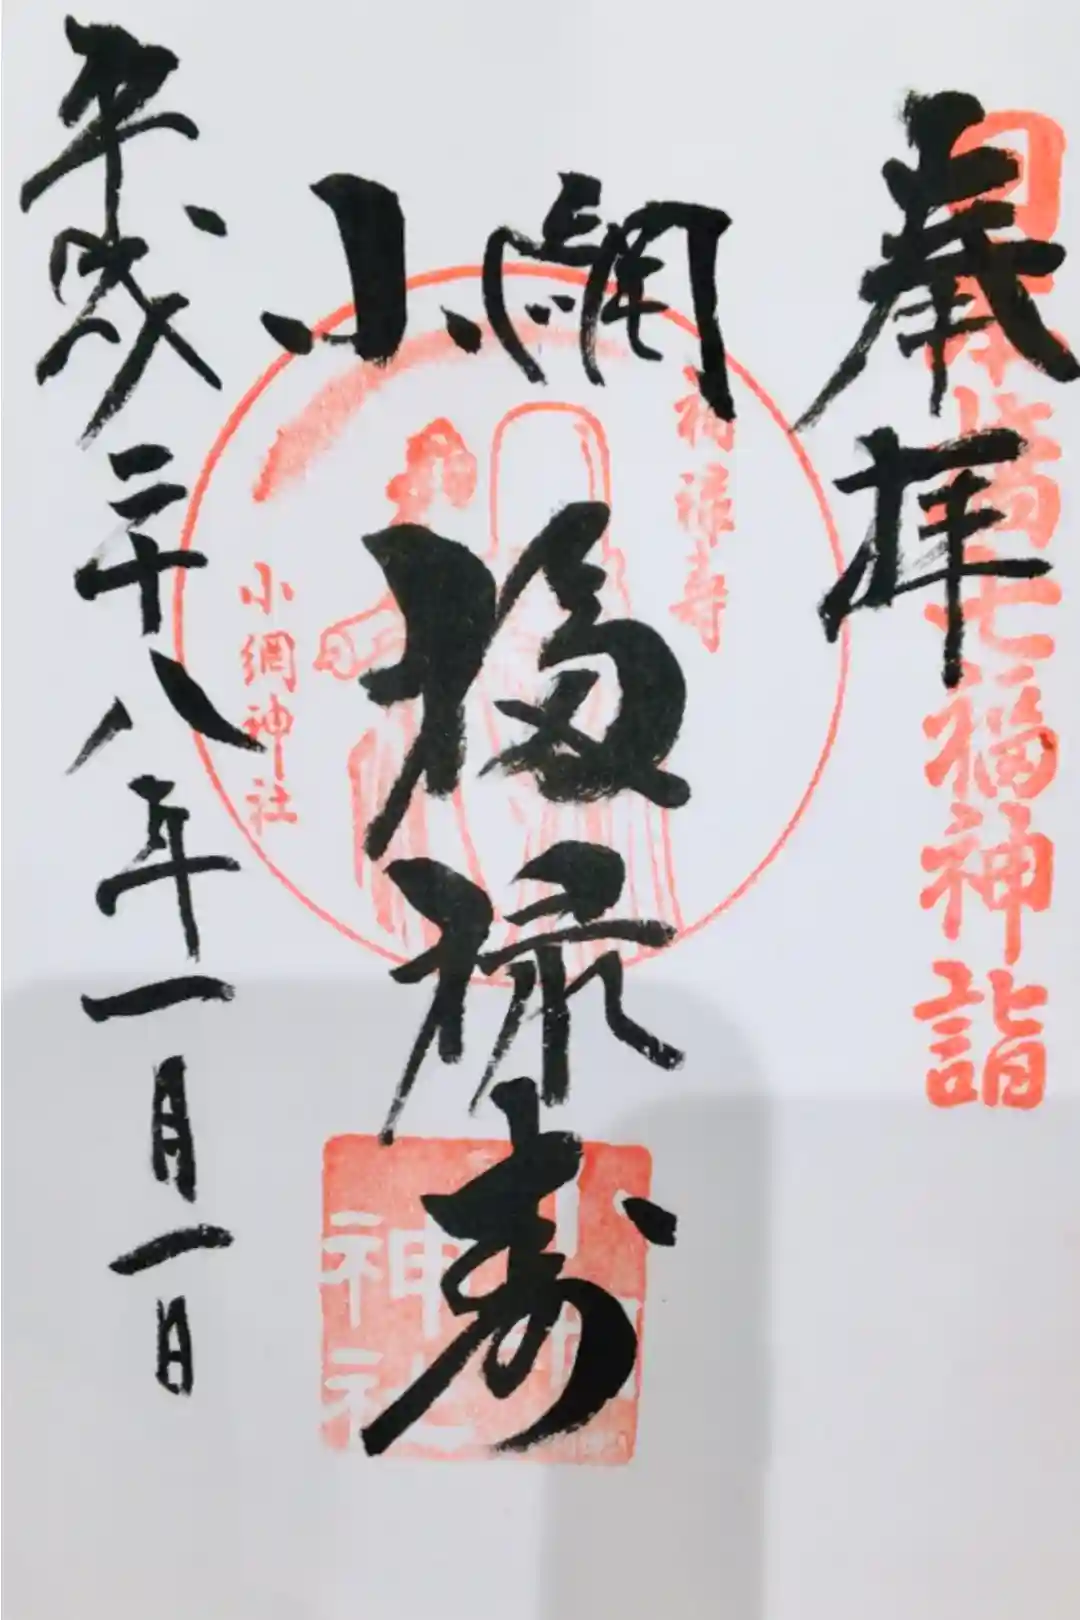 日本橋七福神詣
奉拝
小網
福禄寿
福禄寿
小網神社
小網
神社
平成二十八年一月一日